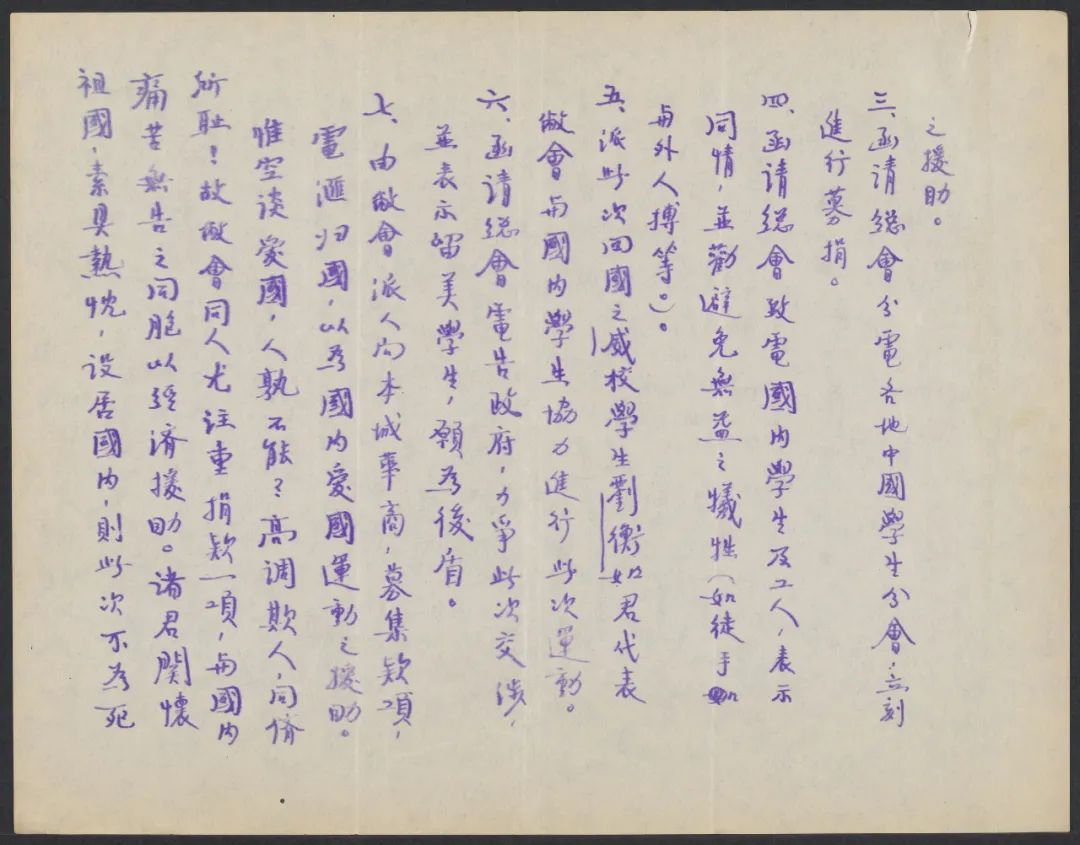 之援助。
三、函請總會分電各地中國學生分會，立刻
進行募捐。
四、函請總會致電國內學生及工人，表示
同情，並勸避免無益之犧牲（如徒手
與外人搏等。）。
五、派此次回國之威校學生劉衡如君代表
敝會與國內學生協力進行此次運動。
六、函請總會電告政府，力爭此次交涉，
並表示留美學生，願為後盾。
七、由敝會派人向本城華商，募集欵項，
電滙归國，以為國內愛國運動之援助。
惟空談愛國，人孰不能？高調欺人，同儕
所耻！故敝會同人尤注重捐欵一項，與國內
痛苦無告之同胞以經濟援助。諸君関懷
祖國，素具熱忱，設居國內，則此次不為死